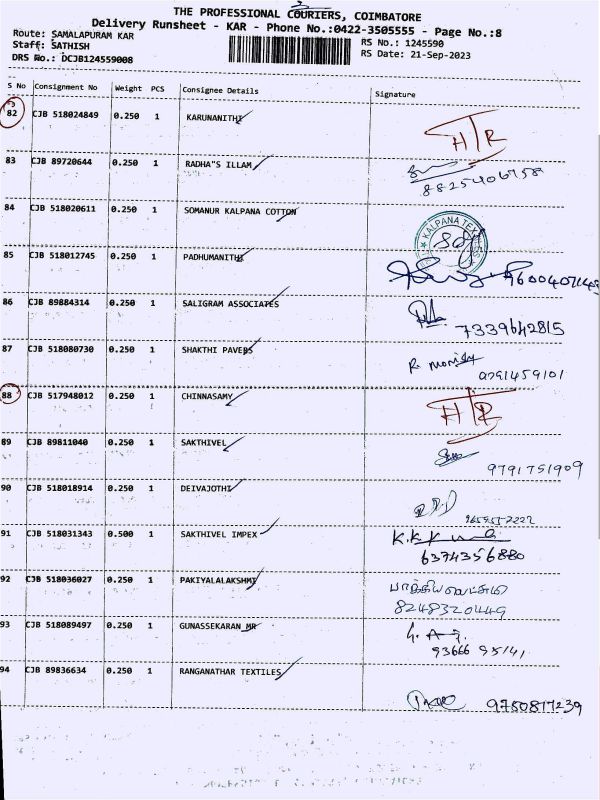 THE PROFESSIONAL COURIERS, COIMBATORE
Delivery Runsheet - KAR - Phone No.:0422-3505555 - Page No.:8
Route: SAMALAPURAM KAR
Staff: SATHISH
DRS No.: DCJB124559008
RS No.: 1245590
RS Date: 21-Sep-2023
S No Consignment No Weight PCS Consignee Details Signature
82 CJB 518024849 0.250 1 KARUNANITHI
83 CJB 89720644 0.250 1 RADHA"S ILLAM
8825406758
84 CJB 518020611 0.250 1 SOMANUR KALPANA COTTON
KALPANA
85 CJB 518012745 0.250 1 PADHUMANITHI
86 CJB 89884314 0.250 1 SALIGRAM ASSOCIATES
7339642815
87 CJB 518080730 0.250 1 SHAKTHI PAVERS
88 CJB 517948012 0.250 1 CHINNASAMY
89 CJB 89811040 0.250 1 SAKTHIVEL
9791751909
90 CJB 518018914 0.250 1 DEIVAJOTHI
91 CJB 518031343 0.500 1 SAKTHIVEL IMPEX
6374356880
92 CJB 518036027 0.250 1 PAKIYALALAKSHMI
8248320449
93 CJB 518089497 0.250 1 GUNASSEKARAN MR
93666 95141
94 CJB 89836634 0.250 1 RANGANATHAR TEXTILES
9750817239